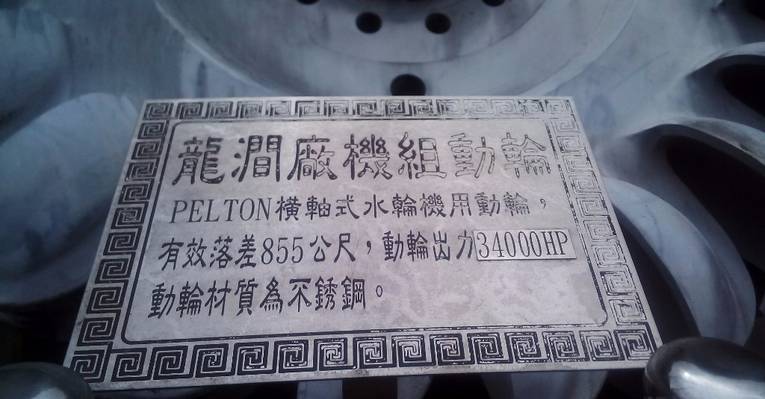 龍澗廠機組動輪
PELTON橫軸式水輪機用動輪，
有效落差855公尺，動輪出力34000HP
動輪材質為不銹鋼。